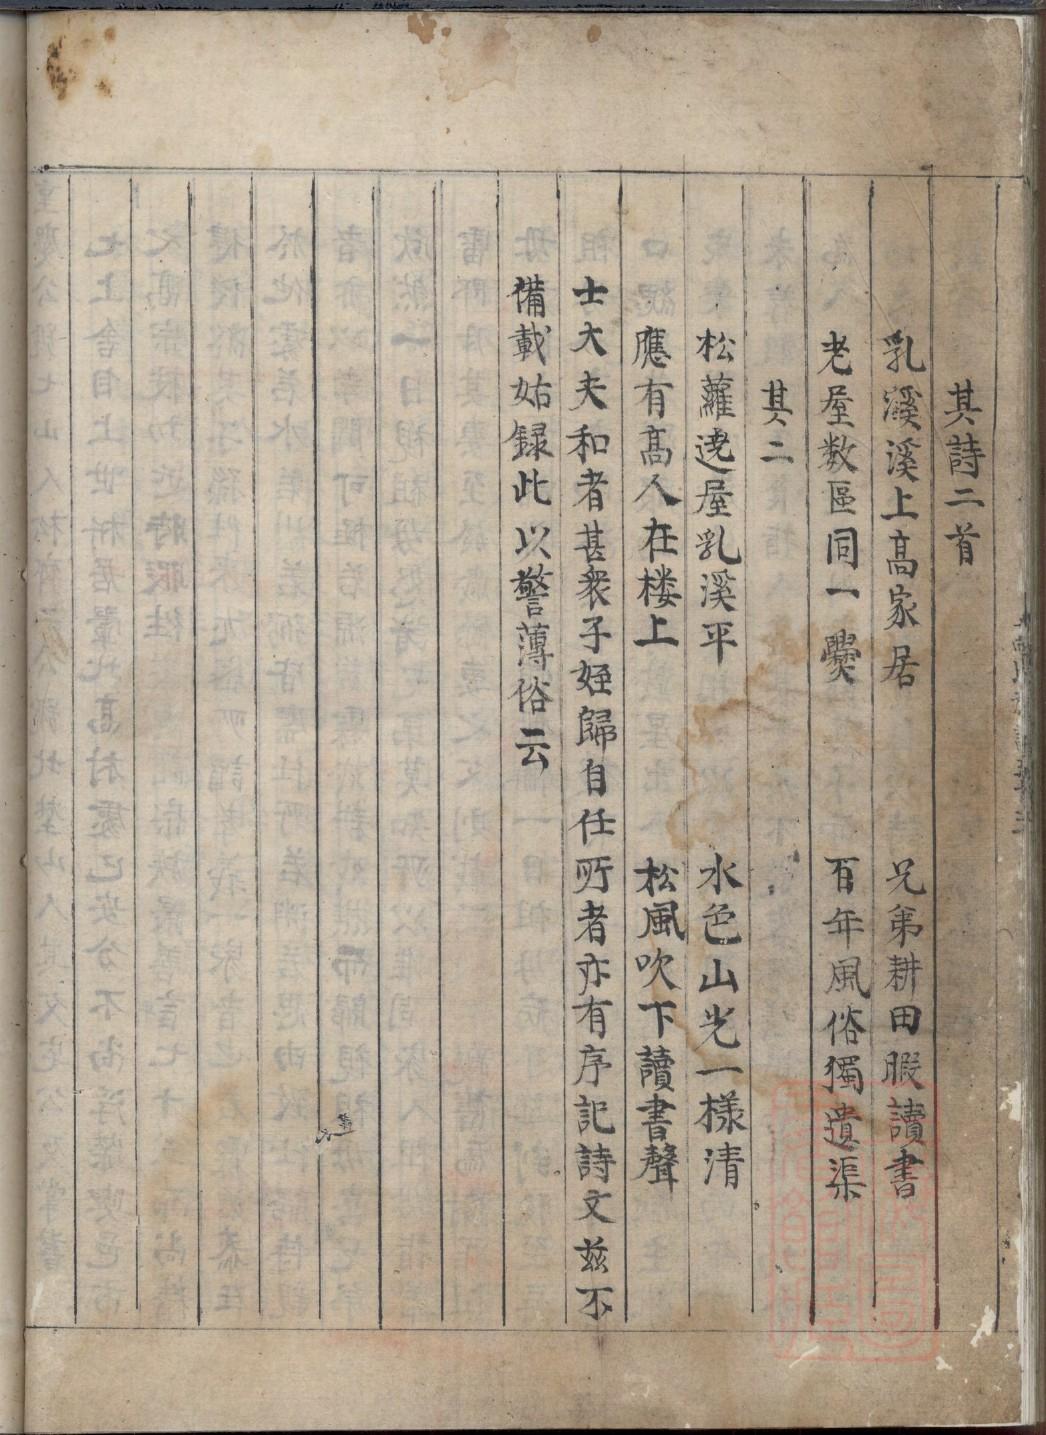 其詩二首
乳溪溪上高家居 兄弟耕田暇讀書
老屋数區同一爨 百年風俗獨遺渠
其二
松蘿遶屋乳溪平 水色山光一樣清
應有高人在楼上 松風吹下讀書聲
士大夫和者甚衆子姪歸自任所者亦有序記詩文兹不
備載姑録此以警薄俗云